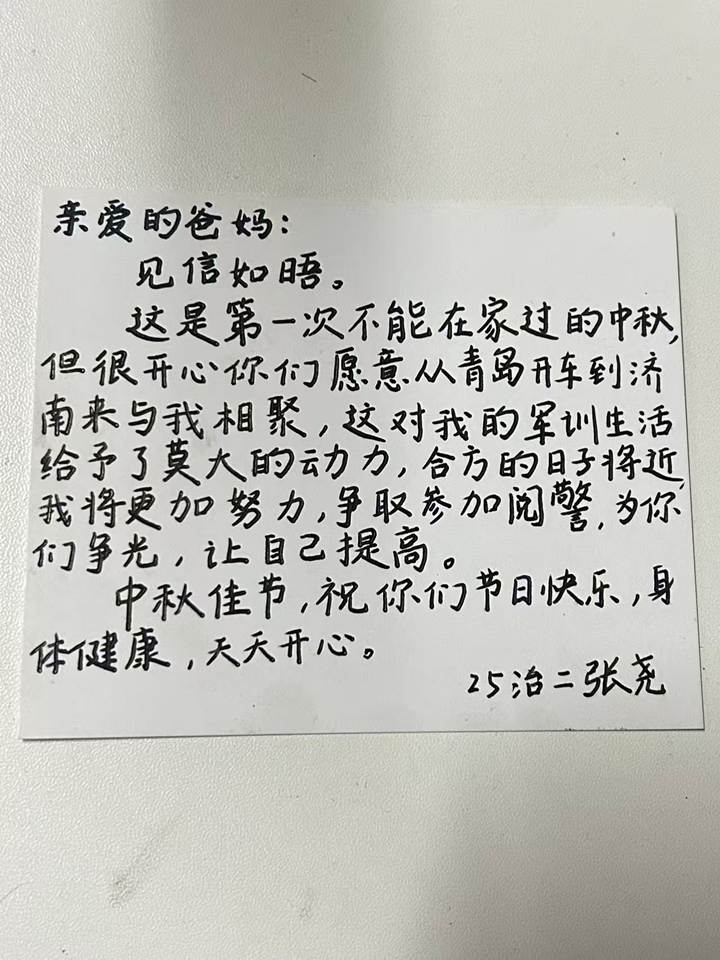 亲爱的爸妈：
见信如晤。
这是第一次不能在家过的中秋，
但很开心你们愿意从青岛开车到济
南来与我相聚，这对我的军训生活
给予了莫大的动力，合方的日子将近，
我将更加努力，争取参加阅警，为你
们争光，让自己提高。
中秋佳节，祝你们节日快乐，身
体健康，天天开心。
25治二张尧